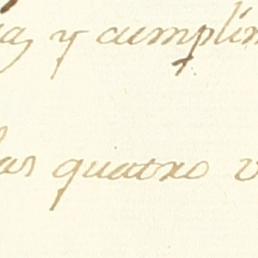 y cumplim
las quatro v